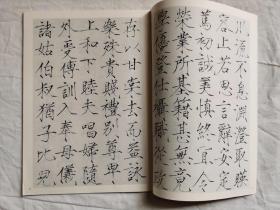 川流不息淵澄取暎
容止若思言辭安定
篤初誠美慎終宜令
榮業所基籍甚無竟
學優登仕攝職從政
存以甘棠去而益詠
樂殊貴賤禮別尊卑
上和下睦夫唱婦隨
外受傅訓入奉母儀
諸姑伯叔猶子比兒